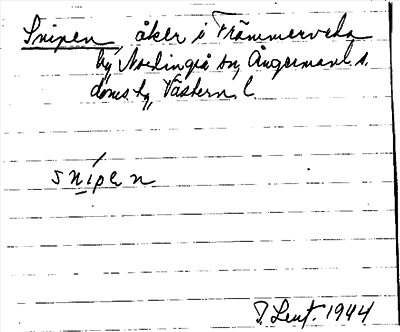 Snipen, åker i Främmerveda
by, Nordingrå sn, Ångermanl. s.
doms hg, Västern. l.
snípen
1944